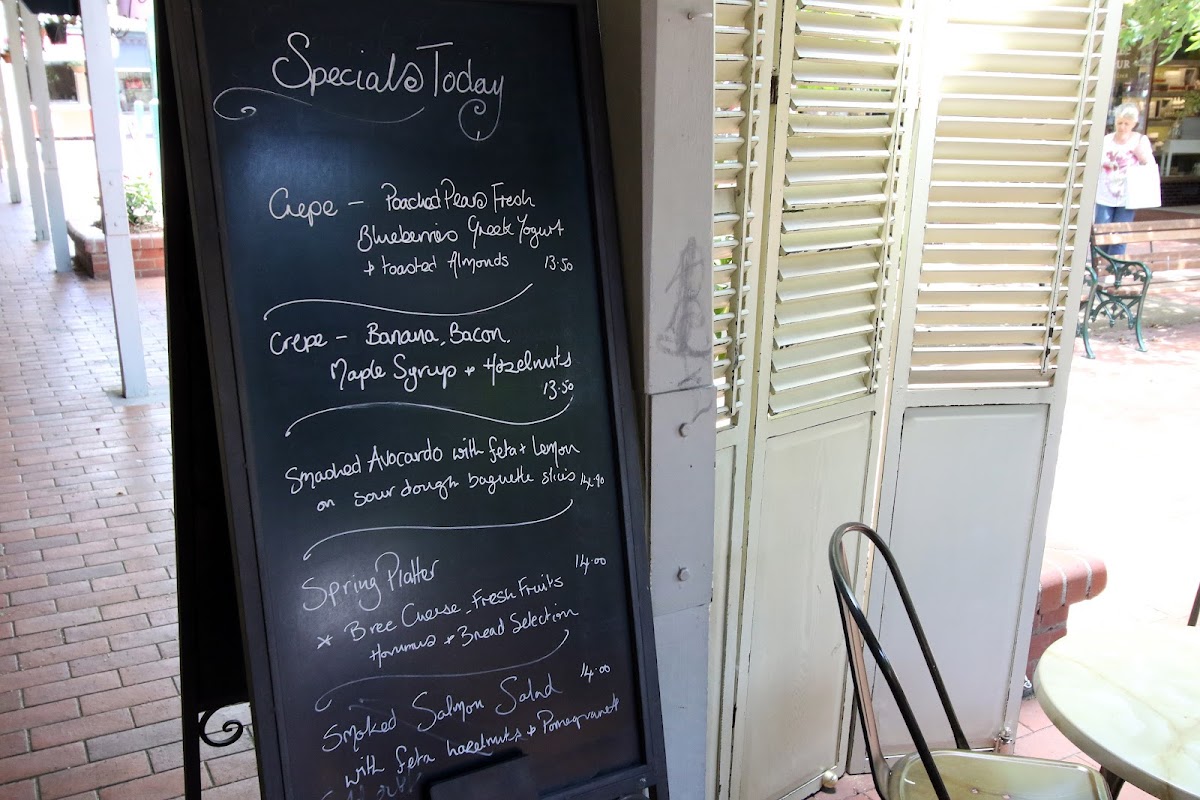 Specials Today
Crepe - Poached Pears Fresh
Blueberries Greek Yogurt
+ toasted Almonds 13.50
Crepe - Banana, Bacon,
Maple Syrup + Hazelnuts
13.50
Smashed Avocardo with feta + Lemon
on sour dough baguette slices 14.90
Spring Platter 14.00
* Bree Cheese - Fresh Fruits
Hommus + Bread Selection
Smoked Salmon Salad 14.00
with feta hazelnuts + Pomegranate